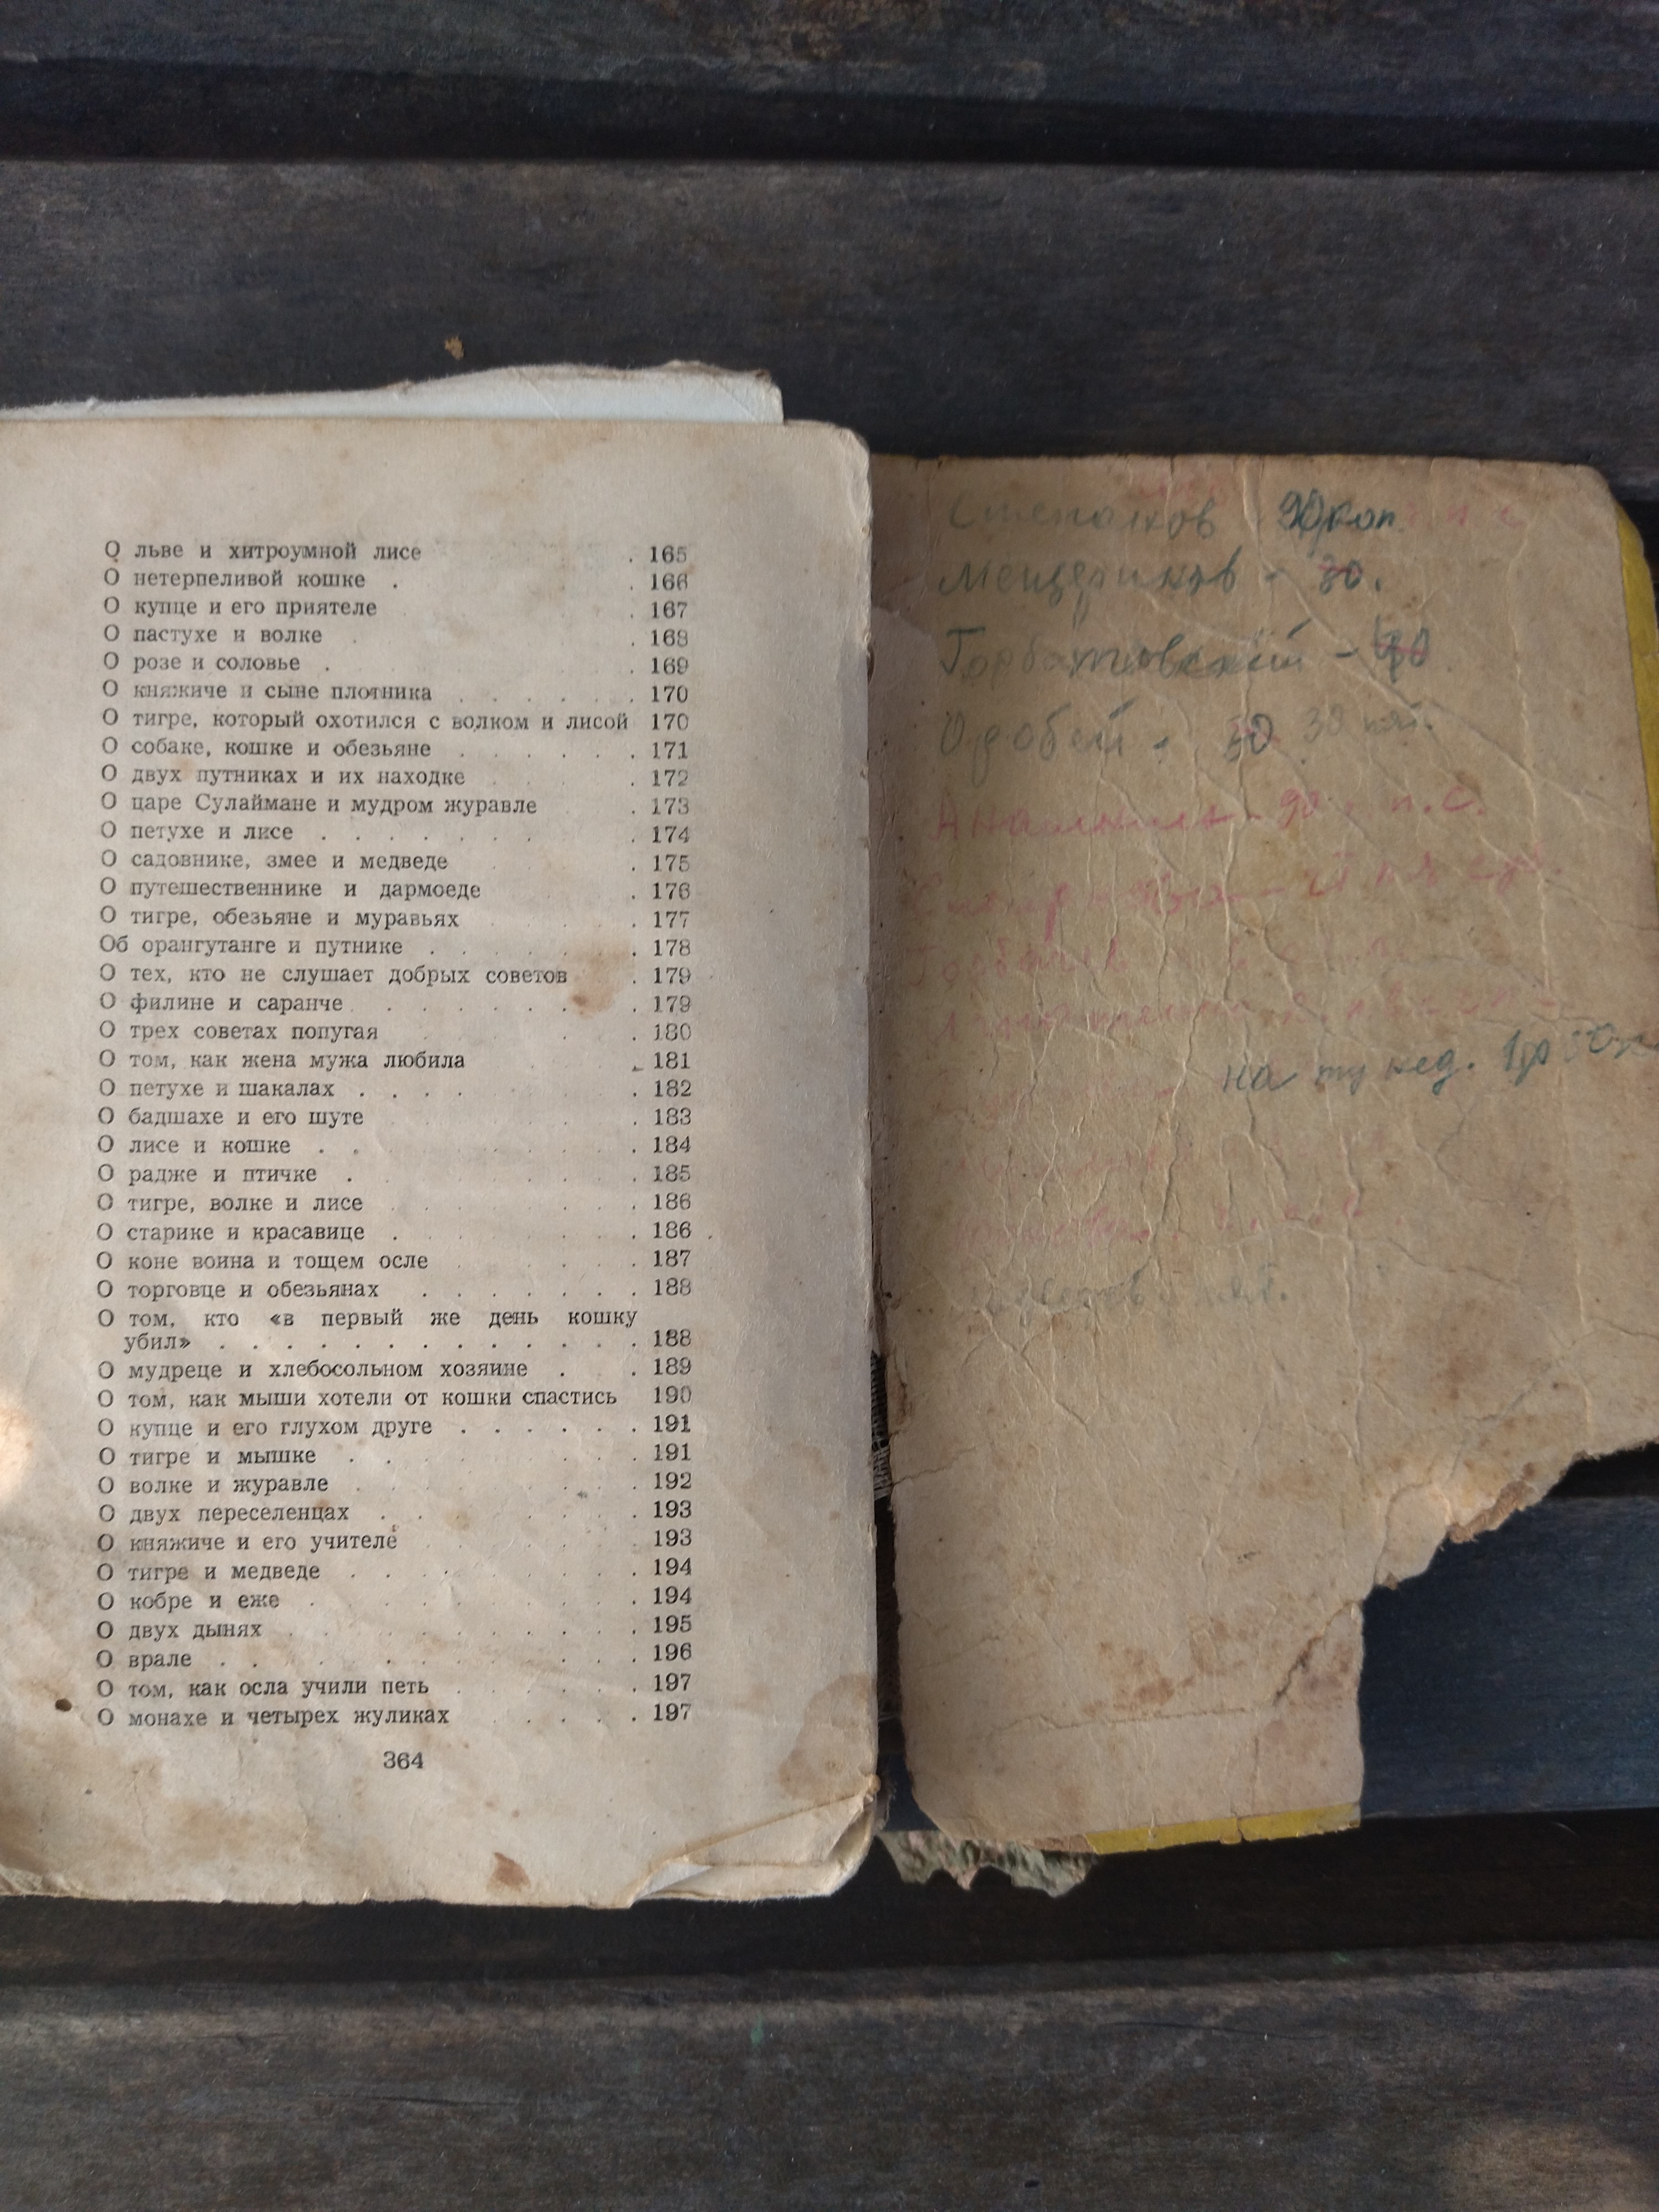 О льве и хитроумной лисе . 165
О нетерпеливой кошке . . 166
О купце и его приятеле . 167
О пастухе и волке . . 168
О розе и соловье . . 169
О княжиче и сыне плотника . . . . . . . 170
О тигре, который охотился с волком и лисой 170
О собаке, кошке и обезьяне . . . . . . . 171
О двух путниках и их находке . 172
О царе Сулаймане и мудром журавле . 173
О петухе и лисе . . . . . . . . 174
О садовнике, змее и медведе . 175
О путешественнике и дармоеде . 176
О тигре, обезьяне и муравьях . 177
Об орангутанге и путнике . . . . . . 178
О тех, кто не слушает добрых советов . 179
О филине и саранче . . . . . . . . 179
О трех советах попугая . 180
О том, как жена мужа любила . 181
О петухе и шакалах . . . . . 182
О бадшахе и его шуте . 183
О лисе и кошке . . . 184
О радже и птичке . . 185
О тигре, волке и лисе . 186
О старике и красавице . . 186
О коне воина и тощем осле . 187
О торговце и обезьянах . . . . . . . 188
О том, кто «в первый же день кошку
убил» . . . . . . . . . . . . . 188
О мудреце и хлебосольном хозяине . . 189
О том, как мыши хотели от кошки спастись 190
О купце и его глухом друге . . . . . . 191
О тигре и мышке . . . 191
О волке и журавле . 192
О двух переселенцах . . . 193
О княжиче и его учителе 193
О тигре и медведе . . . . . . . . . 194
О кобре и еже . . . . . . . . . 194
О двух дынях . . . . . . . . . . 195
О врале . . . . . . . . . 196
О том, как осла учили петь . . . . . . 197
О монахе и четырех жуликах . . . . . 197
364
90 коп.
Мещеряков - 30.
Горбатовский -
30
90 п.с.
на ту нед.